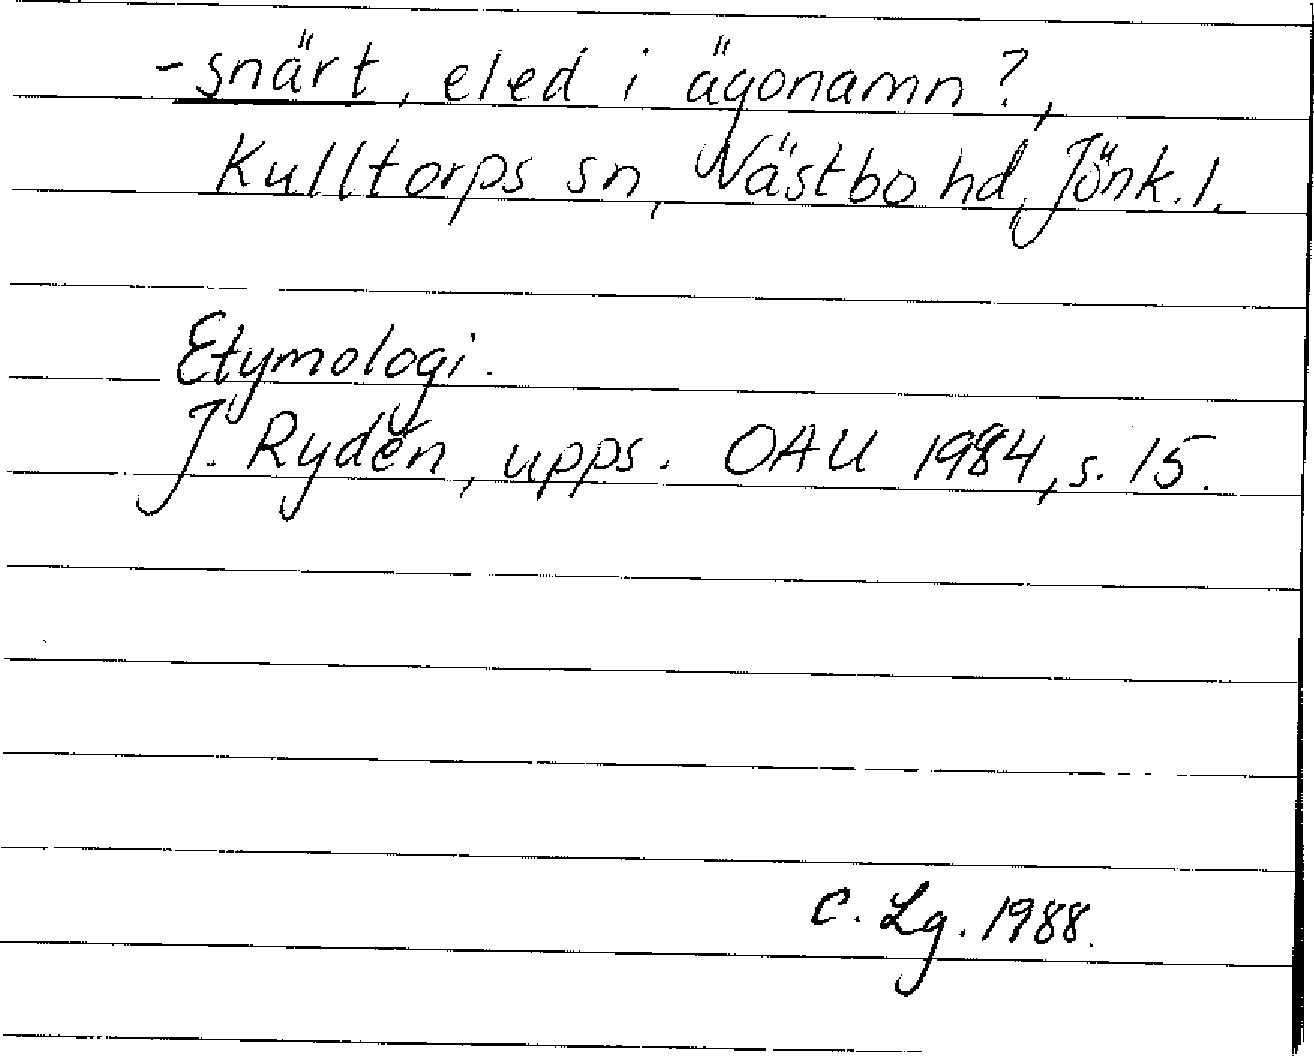 -snärt, eled i ägonamn?,
Kulltorps sn, Västbo hd, Jönk. l.
Etymologi.
J. Rydén, upps. OAU 1984, s. 15.
C. Lg. 1988.